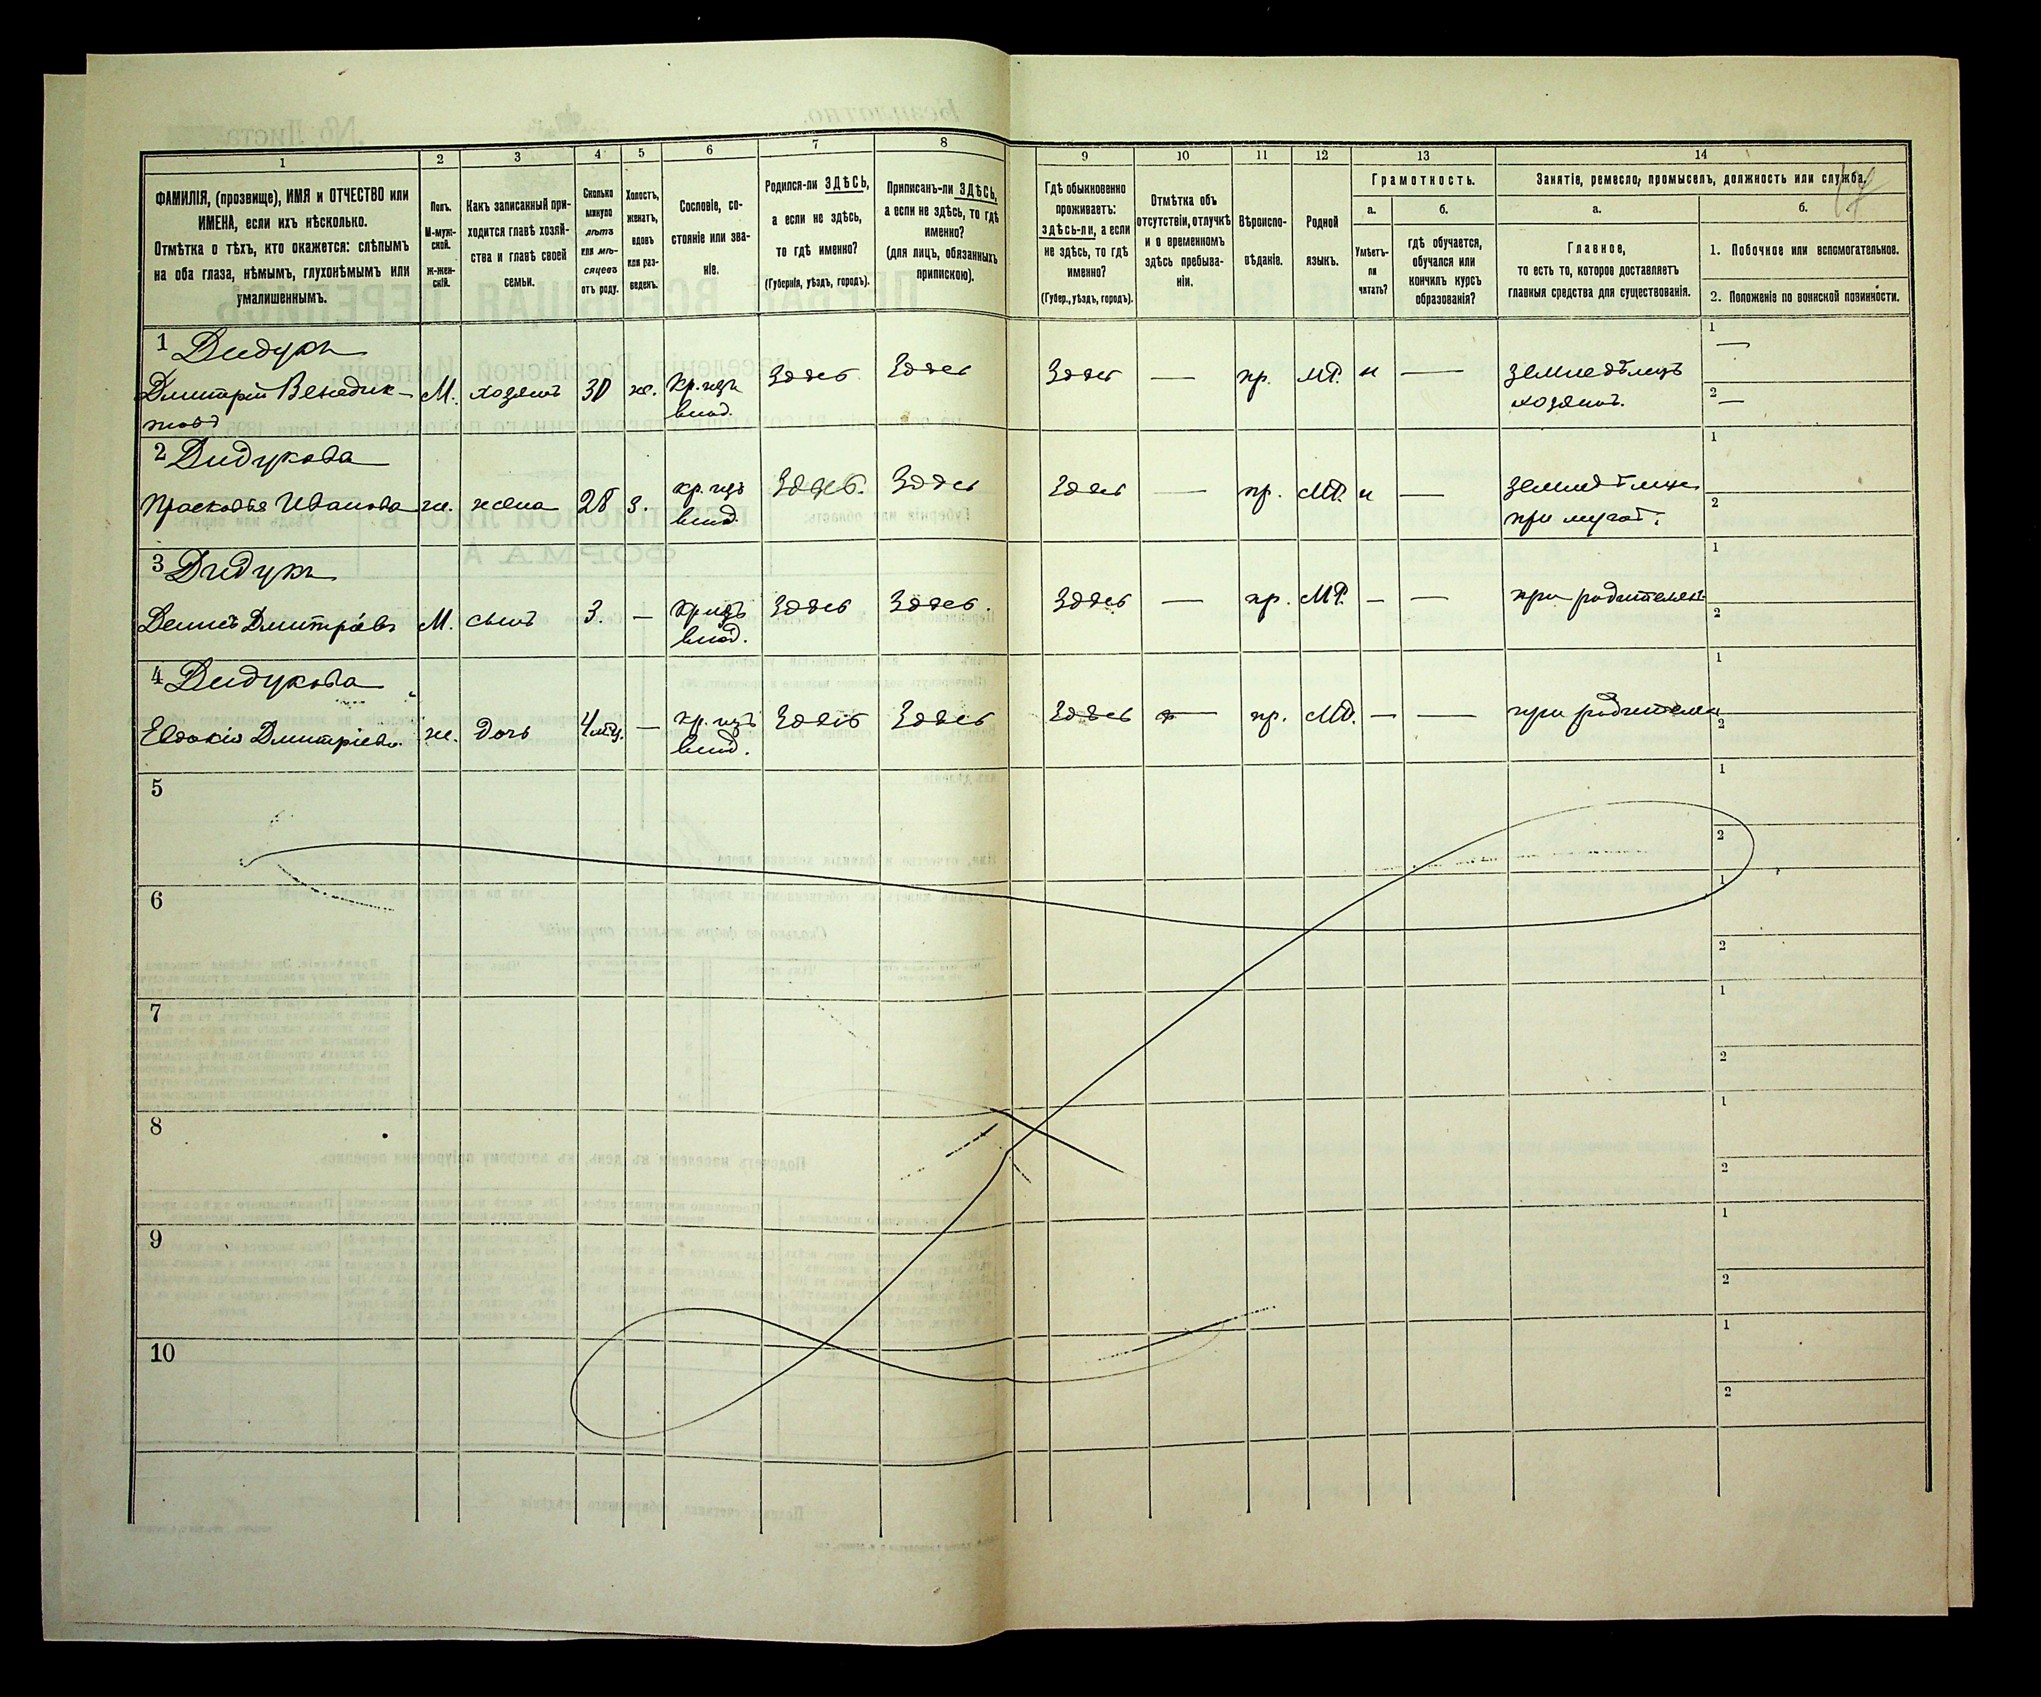 1
2
3
4
5
6
7
8
9
10
11
12
13
14
ФАМИЛІЯ, (прозвище), ИМЯ и ОТЧЕСТВО или
ИМЕНА, если ихъ нѣсколько.
Отмѣтка о тѣхъ, кто окажется: слѣпымъ
на оба глаза, нѣмымъ, глухонѣмымъ или
умалишеннымъ.
Полъ.
М-муж-
ской.
ж-жен-
скій.
Какъ записанный при-
ходится главѣ хозяй-
ства и главѣ своей
семьи.
Сколько
минуло
лѣтъ
или мѣ-
сяцевъ
отъ роду.
Холостъ,
женатъ,
вдовъ
или раз-
веденъ.
Сословіе, со-
стояніе или зва-
ніе.
Родился-ли ЗДѢСЬ,
а если не здѣсь,
то гдѣ именно?
(Губернія, уѣздъ, городъ).
Приписанъ-ли ЗДѢСЬ,
а если не здѣсь, то гдѣ
именно?
(для лицъ, обязанныхъ
припискою).
Гдѣ обыкновенно
проживаетъ:
здѣсь-ли, а если
не здѣсь, то гдѣ
именно?
(Губер., уѣздъ, городъ).
Отмѣтка объ
отсутствіи, отлучкѣ
и о временномъ
здѣсь пребыва-
ніи.
Вѣроиспо-
вѣданіе.
Родной
языкъ.
Грамотность.
а.
б.
Умѣетъ-
ли
читать?
гдѣ обучается,
обучался или
кончилъ курсъ
образованія?
Занятіе, ремесло, промыселъ, должность или служба.
а.
б.
Главное,
то есть то, которое доставляетъ
главныя средства для существованія.
1. Побочное или вспомогательное.
2. Положеніе по воинской повинности.
1 Дидукъ
Дмитрій Венедик-
товъ
М.
хозяинъ
30
ж.
кр. изъ
влад.
Здѣсь
Здѣсь
Здѣсь
—
пр.
МР.
н
—
земледѣлецъ
хозяинъ.
1
—
2
—
2 Дидукова
Прасковья Иванова
ж.
жена
28
з.
кр. изъ
влад.
Здѣсь.
Здѣсь
Здѣсь
—
пр.
МР.
н
—
при мужѣ.
1
2
3 Дидукъ
Денисъ Дмитріевъ
М.
сынъ
3.
—
кр изъ
влад.
Здѣсь
Здѣсь.
Здѣсь
—
пр.
МР.
—
—
при родителяхъ
1
2
4 Дидукова
Евдокія Дмитріева.
ж.
дочь
4 мѣс.
—
кр. изъ
влад.
Здѣсь
Здѣсь
Здѣсь
—
пр.
МР.
—
—
при родителяхъ
1
2
5
1
2
6
1
2
7
1
2
8
1
2
9
1
2
10
1
2